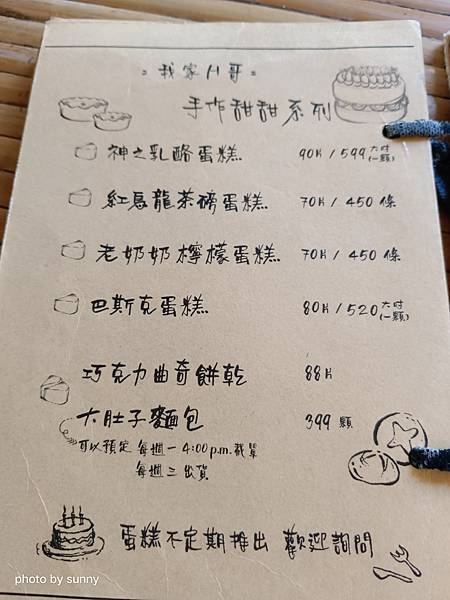 我家H哥
手作甜甜系列
神之乳酪蛋糕 90片/599 六吋(一顆)
紅烏龍茶磅蛋糕 70片/450條
老奶奶檸檬蛋糕 70片/450條
巴斯克蛋糕 80片/520 六吋(一顆)
巧克力曲奇餅乾 88片
大肚子麵包 399顆
可以預定 每週一4:00p.m.截單
每週三出貨
蛋糕不定期推出 歡迎詢問
photo by sunny